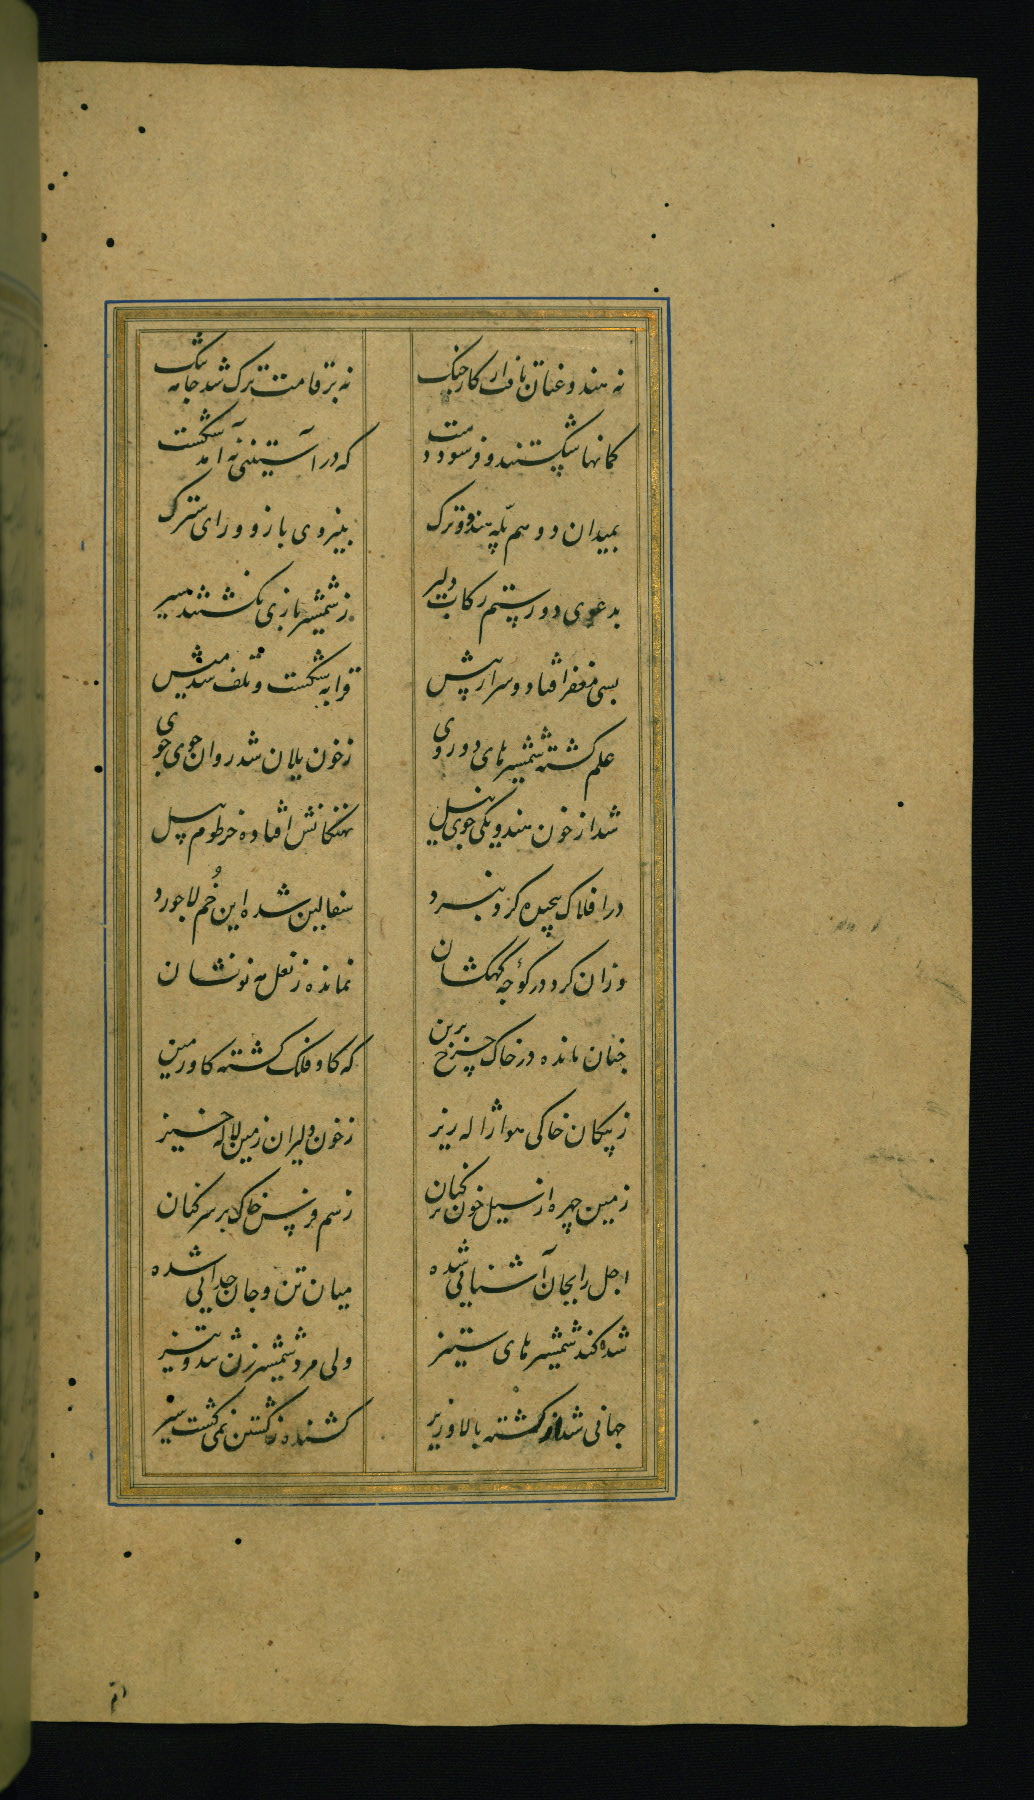 نه هندو عنان تافت از کار جنک نه بر قامت ترک شد جامه تنک
کمانها شکستند و فرسود دست که در آستینی نه آمد شکست
بمیدان دو هم پلّه هندو و ترک بنیروی بازو و رای سترک
بدعوی دو رستم رکاب دلیر ز شمشیر بازی نکشتند سیر
بسی مغفر افتاد و سر از پیش قرابه شکست و تلف شد
علم کشته شمشیرهای دو روی ز خون یلان شد روان جوی جوی
شد از خون هندو یکی جوی نیل نهنکانش افتاده خرطوم پیل
در افلاک پیچیده کرد نبرد سفالین شده این خُم لاجورد
وزان کرد در کوچه کهکشان نمانده ز نعل مه نو نشان
چنان مانده در خاک چرخ برین که کاو فلک کشته کاو زمین
ز پیکان خاکی هوا ژاله ریز ز خون دلیران زمین لاله خیز
زمین چهره از سیل خون تر کنان ز سم فرس خاک بر سر کنان
اجل را بجان آشنایی شده میان تن و جان جدایی شده
شده کند شمشیرهای ستیز ولی مرد شمشیر زن تند و تیز
جهانی شد از کشته بالا و زیر کشنده ز کشتن نمی کشت سیر